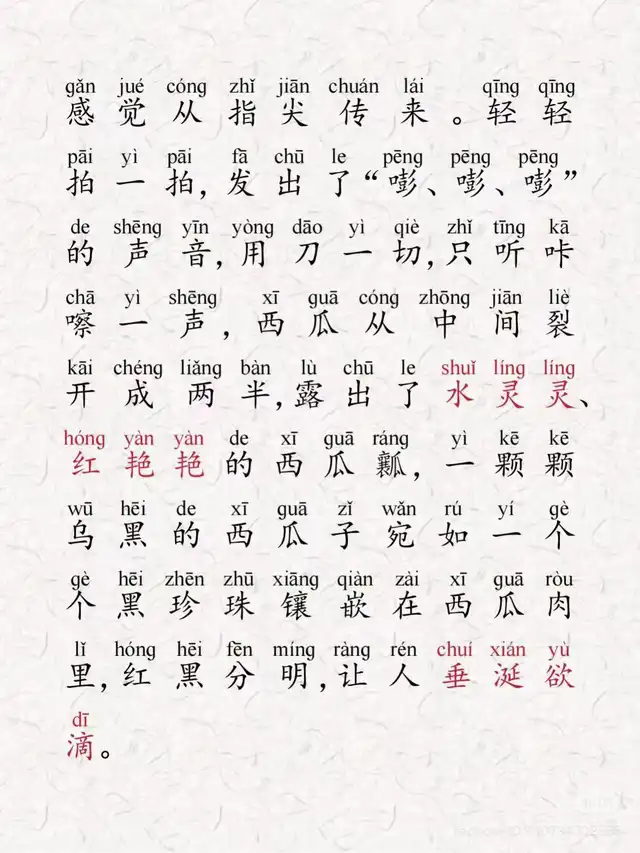 gǎn jué cóng zhǐ jiān chuán lái qīng qīng
感觉从指尖传来。轻轻
pāi yì pāi fā chū le pēng pēng pēng
拍一拍,发出了“嘭、嘭、嘭”
de shēng yīn yòng dāo yì qiè zhǐ tīng kā
的声音,用刀一切,只听咔
chā yì shēng xī guā cóng zhōng jiān liè
嚓一声,西瓜从中间裂
kāi chéng liǎng bàn lù chū le shuǐ líng líng
开成两半,露出了水灵灵、
hóng yàn yàn de xī guā ráng yì kē kē
红艳艳的西瓜瓤,一颗颗
wū hēi de xī guā zǐ wǎn rú yí gè
乌黑的西瓜子宛如一个
gè hēi zhēn zhū xiāng qiàn zài xī guā ròu
个黑珍珠镶嵌在西瓜肉
lǐ hóng hēi fēn míng ràng rén chuí xián yù
里,红黑分明,让人垂涎欲
dī
滴。